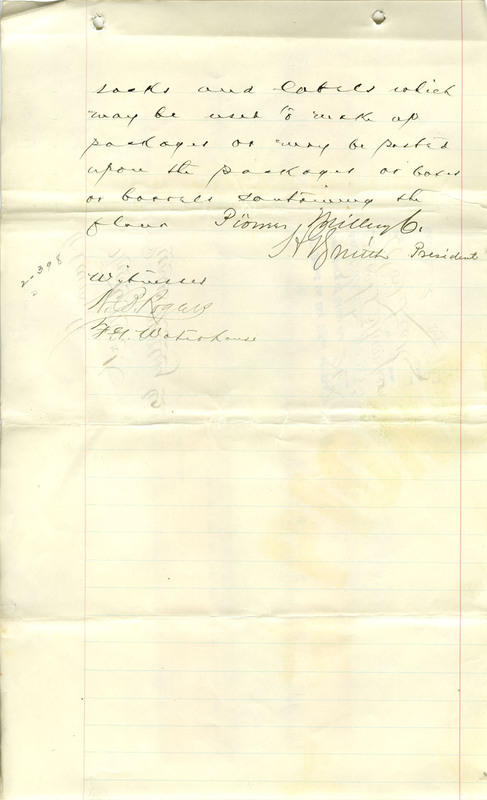 sacks and labels which
may be used to make up
packages or may be pasted
upon the packages or boxes
or barrels containing the
flour Pioneer Milling Co.
Smith President
2-398
Witnesses
Rogers
F. G. Waterhouse